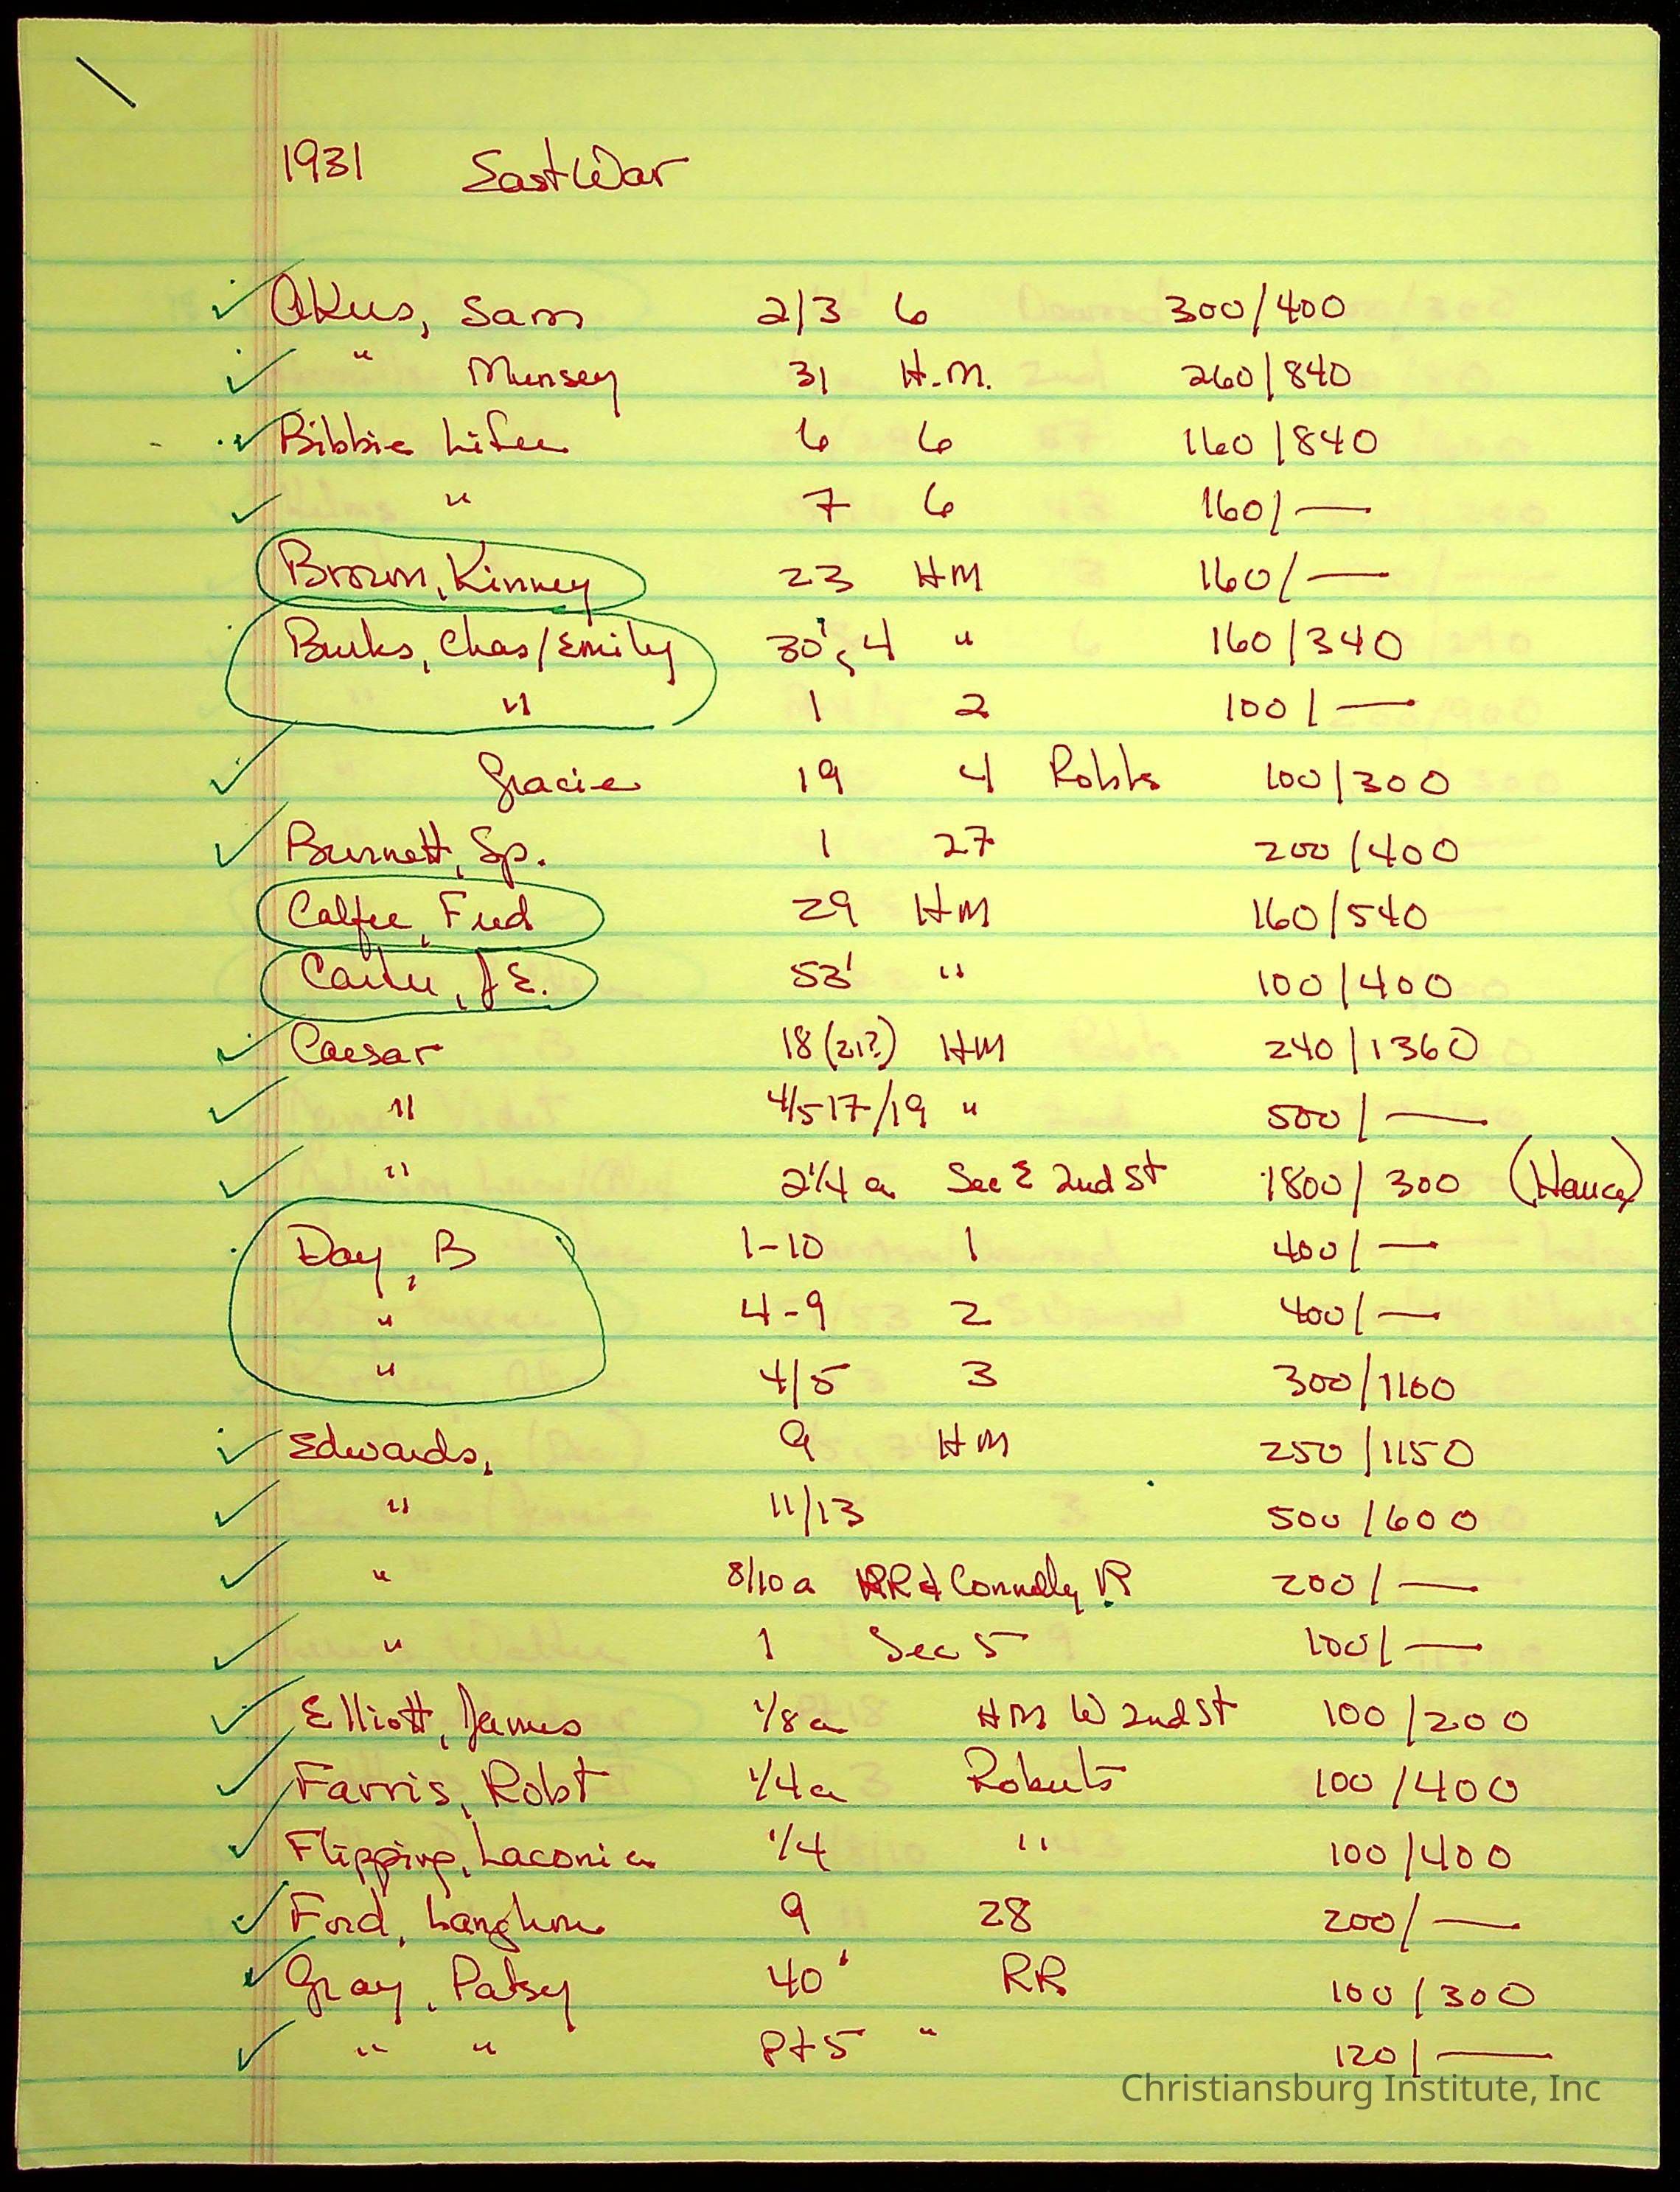 1931 East War
Akus, Sam 2/3 6 300/400
" Munsey 31 H.M. 260/840
Bibbie Lifee 6 6 160/840
" 7 6 160/—
Brown, Kinney 23 HM 160/—
Burks, Chas/Emily 30', 4 " 160/340
" 1 2 100/—
Gracie 19 4 Robts 100/300
Burnett, Sp. 1 27 200/400
Calfee, Fred 29 HM 160/540
Carter, J.E. 53' " 100/400
Caesar 18 (21?) HM 240/1360
" 4/5 17/19 " 500/—
" 2 1/4 a Sec E 2nd St 1800/300 (House)
Day, B 1-10 1 400/—
" 4-9 2 400/—
" 4/5 3 300/1100
Edwards, 9 HM 250/1150
" 11/13 500/600
" 8/10 a RR & Connelly 200/—
" 1 Sec 5 100/—
Elliott, James 1/8 a HM W 2nd St 100/200
Farris, Robt 1/4 a Roberts 100/400
Flipping, Laconia 1/4 " 100/400
Ford, Langhorne 9 28 200/—
Gray, Patsy 40' RR 100/300
" " Pt 5 " 120/—
Christiansburg Institute, Inc